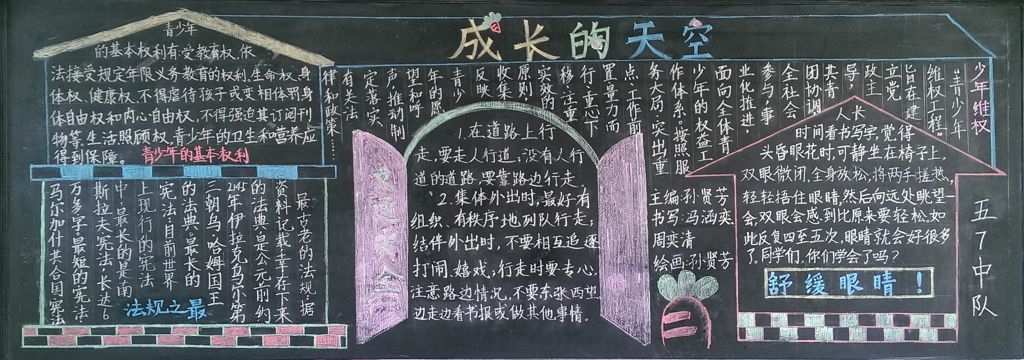 成长的天空
青少年
的基本权利有受教育权、依
法接受规定年限义务教育的权利、生命权、身
体权、健康权、不得虐待孩子或变相体罚身
体自由权和内心自由权、不得强迫其订阅刊
物等、生活照顾权、青少年的卫生和营养应
得到保障。
青少年的基本权利
最古老的法规、据
资料记载、幸存下来
的法典是公元前约
三朝乌·哈姆国王
的法典。最长的
宪法:目前世界
上现行的宪法
中,最长的是南
斯拉夫宪法,长达6
万多字。最短的宪法
马尔加什共合国宪法
法规之最
少年维权
青少年
维权工程。
旨在建
立党
政主
导,
共青
团协调,
全社会
参与,事
业化推进,
面向全体青
少年的权益工
作体系,按照服
务大局,突出重
点,工作前
置,力量而
行,重心下
移,注重
实效的
原则,
收集
反映
青少
年的愿
望和呼
声,推动制
定落实
有关法
律和政策……
1.在道路上行
走,要走人行道,没有人行
道的道路,要靠路边行走。
2.集体外出时,最好有
组织、有秩序地列队行走;
结伴外出时,不要相互追逐
打闹、嬉戏,行走时要专心,
注意路边情况,不要东张西望、
边走边看书报或做其他事情。
交通
安全
主编:孙贤芳
书写:冯涵奕
周奕清
绘画:孙贤芳
二
人长
时间看书写字,觉得
头昏眼花时,可静坐在椅子上,
双眼微闭,全身放松,将两手搓热,
轻轻捂住眼睛,然后向远处眺望一
会,双眼会感到比原来要轻松。如
此反复四至五次,眼睛就会好很多
了,同学们,你们学会了吗?
舒缓眼睛!
五7中队